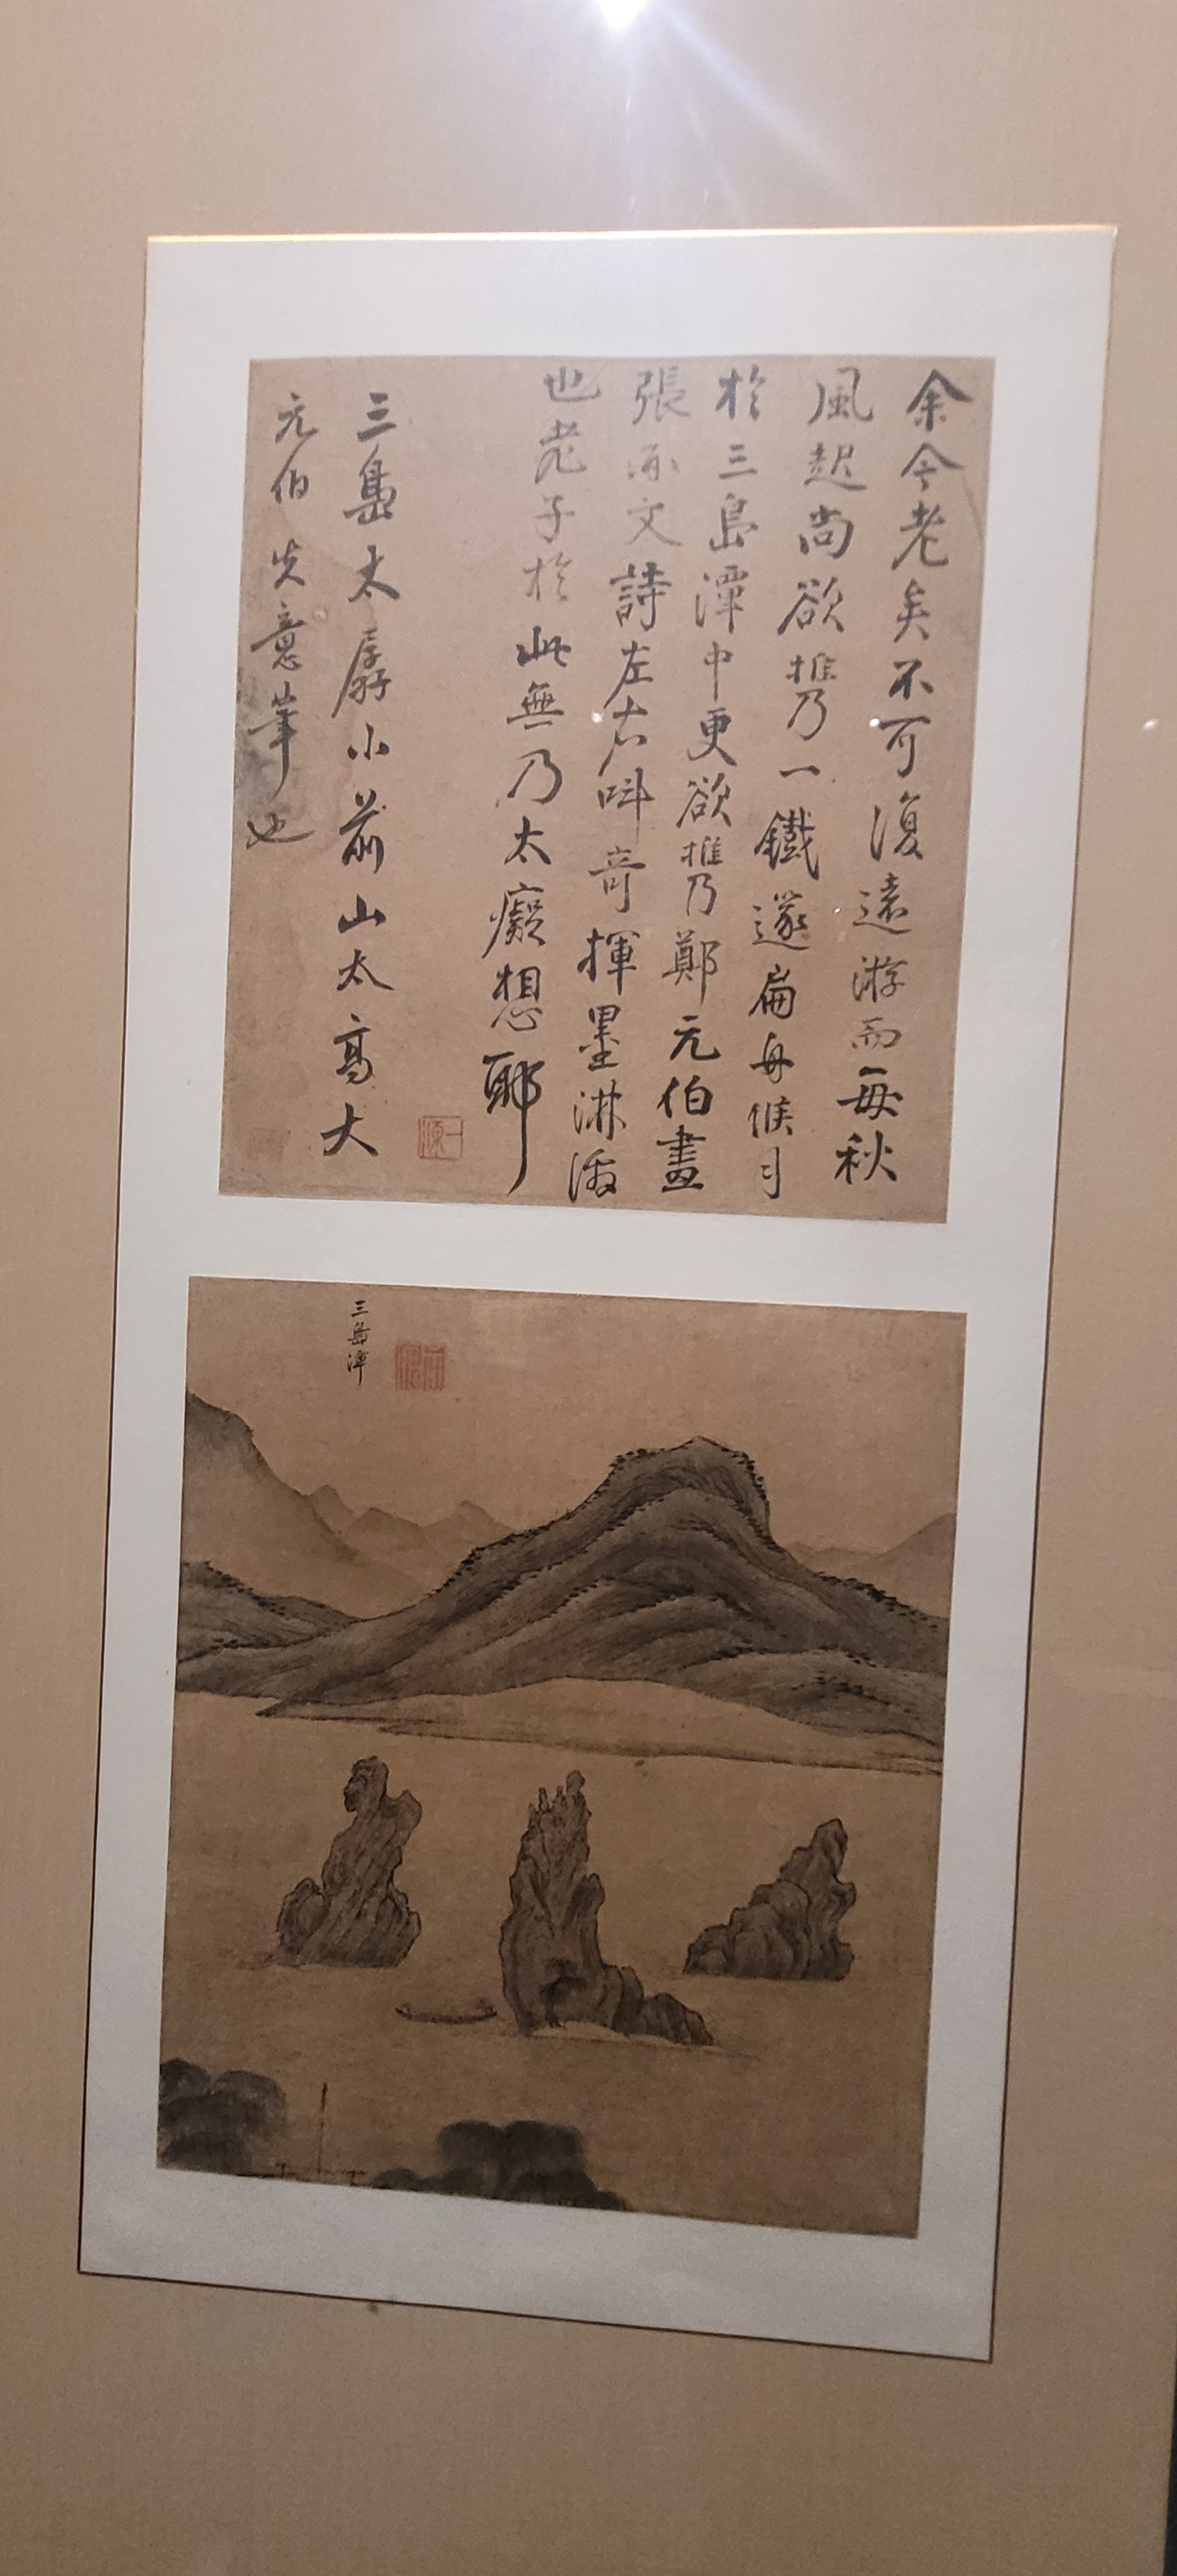 余今老矣不可復遠游而每秋
風起尚欲携一鐵邃扁舟候月
於三島潭中更欲携鄭元伯畫
張永文詩左右叫奇揮墨淋漓
也老子於此無乃太癡想耶
三島太孱小前山太高大
元伯失意筆也
一源
三島潭